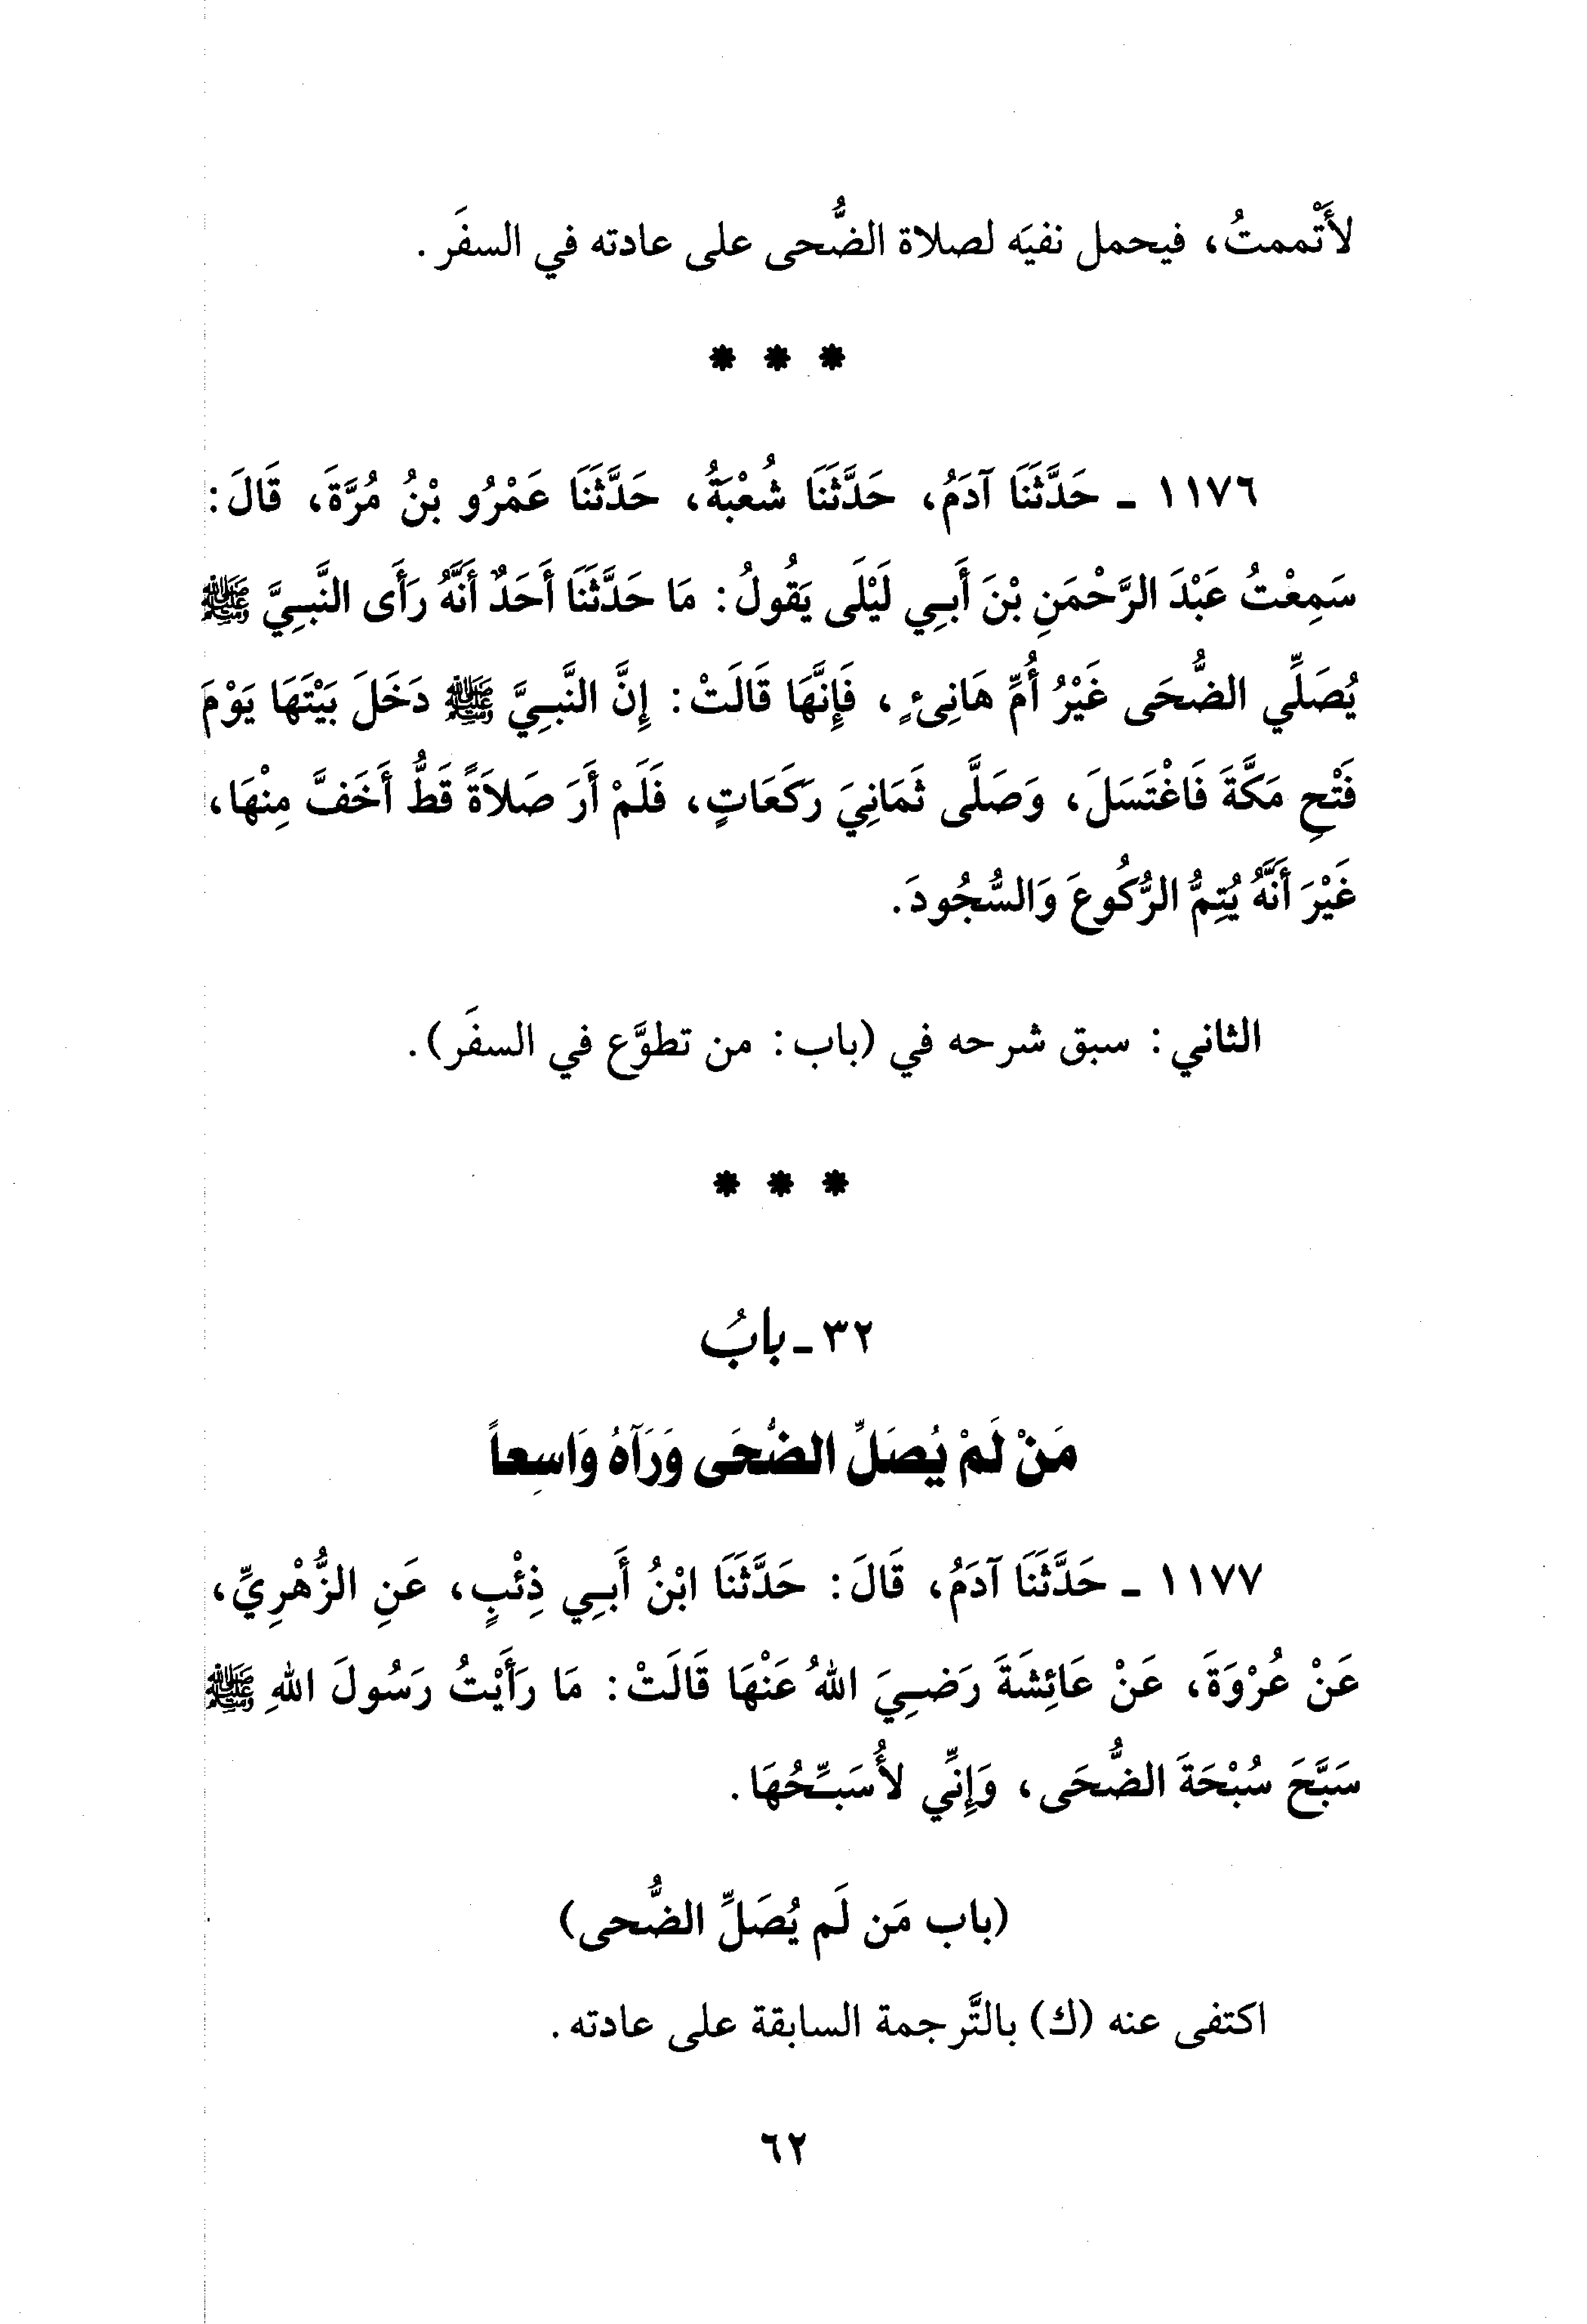 لأَتْممتُ، فيحمل نفيَه لصلاة الضُّحى على عادته في السفَر.
* * *
١١٧٦ ـ حَدَّثَنَا آدَمُ، حَدَّثَنَا شُعْبَةُ، حَدَّثَنَا عَمْرُو بْنُ مُرَّةَ، قَالَ:
سَمِعْتُ عَبْدَ الرَّحْمَنِ بْنَ أَبِي لَيْلَى يَقُولُ: مَا حَدَّثَنَا أَحَدٌ أَنَّهُ رَأَى النَّبِيَّ ﷺ
يُصَلِّي الضُّحَى غَيْرُ أُمِّ هَانِىءٍ، فَإِنَّهَا قَالَتْ: إِنَّ النَّبِيَّ ﷺ دَخَلَ بَيْتَهَا يَوْمَ
فَتْحِ مَكَّةَ فَاغْتَسَلَ، وَصَلَّى ثَمَانِيَ رَكَعَاتٍ، فَلَمْ أَرَ صَلاَةً قَطُّ أَخَفَّ مِنْهَا،
غَيْرَ أَنَّهُ يُتِمُّ الرُّكُوعَ وَالسُّجُودَ.
الثاني: سبق شرحه في (باب: من تطوَّع في السفَر).
* * *
٣٢ ـ بابُ
مَنْ لَمْ يُصَلِّ الضُّحَى وَرَآهُ وَاسِعاً
١١٧٧ ـ حَدَّثَنَا آدَمُ، قَالَ: حَدَّثَنَا ابْنُ أَبِي ذِئْبٍ، عَنِ الزُّهْرِيِّ،
عَنْ عُرْوَةَ، عَنْ عَائِشَةَ رَضِيَ اللهُ عَنْهَا قَالَتْ: مَا رَأَيْتُ رَسُولَ اللهِ ﷺ
سَبَّحَ سُبْحَةَ الضُّحَى، وَإِنِّي لأُسَبِّحُهَا.
(باب مَن لَم يُصَلِّ الضُّحى)
اكتفى عنه (ك) بالتَّرجمة السابقة على عادته.
٦٢